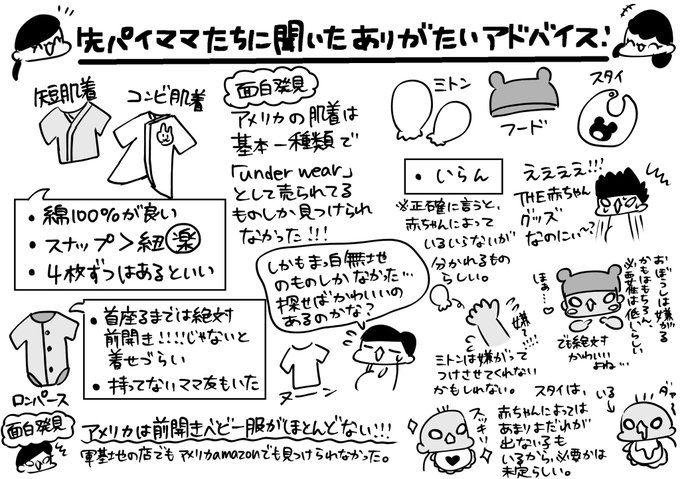 先パイママたちに聞いたありがたいアドバイス!
短肌着
コンビ肌着
・綿100%が良い
・スナップ>紐 楽
・4枚ずつはあるといい
面白発見
アメリカの肌着は
基本一種類で
「under wear」
として売られてる
ものしか見つけられ
なかった!!!
しかもまっ白無地
のものしかなかった…
探せばかわいいの
あるのかな?
ヌーン
ミトン
フード
スタイ
・いらん
※正確に言うと、
赤ちゃんによって
いるいらないが
分かれるもの
らしい。
ええええ!!!
THE赤ちゃん
グッズ
なのにぃ〜?
嫌〜!!!
ミトンは嫌がって
つけさせてくれない
かもしれない。
おぼうしは嫌がる
かもはもちろん、
必要性は低いらしい
ほぁ…
でも絶対
かわいい
よね…
ロンパース
・首座るまでは絶対
前開き!!!!じゃないと
着せづらい
・持ってないママ友もいた
面白発見
アメリカは前開きベビー服がほとんどない!!!
軍基地の店でもアメリカamazonでも見つけられなかった。
スッキリ
スタイは、
赤ちゃんによっては
あまりよだれが
出ない子も
いるから、必要かは
未定らしい。
いる
ダァー